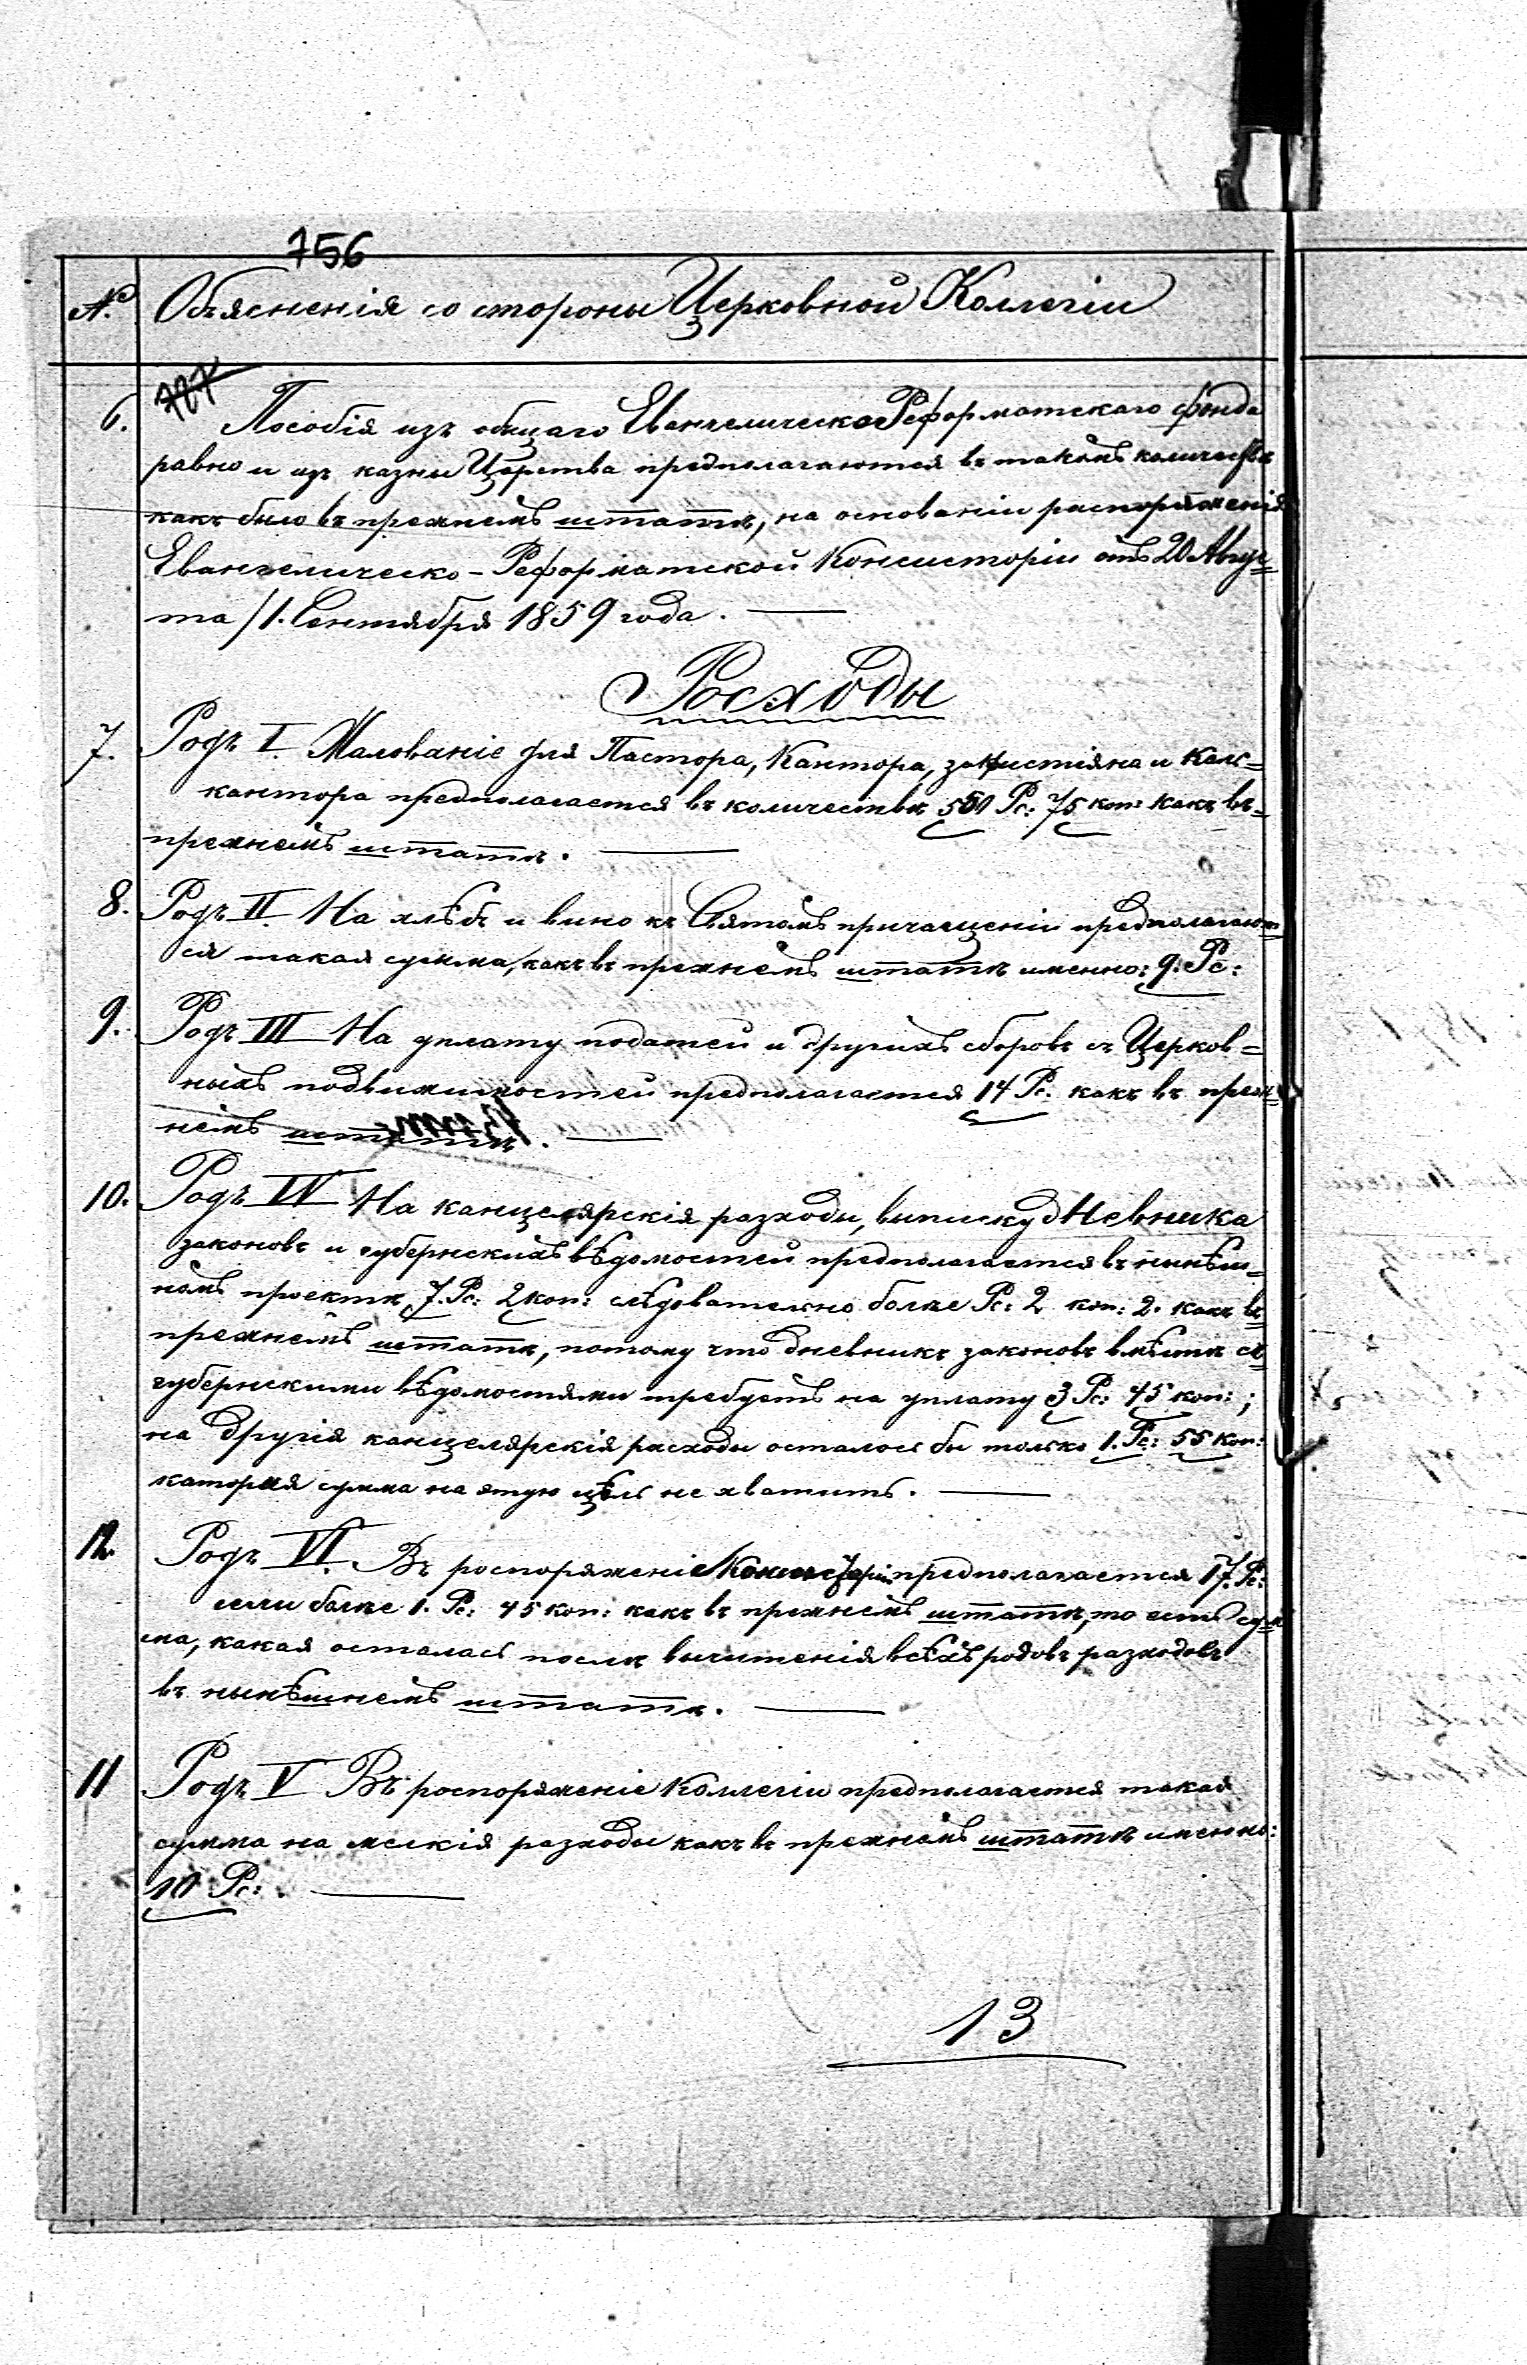 756
№ Объясненія со стороны Церковной Коллегіи
727
6. Пособія изъ общаго Евангелическо Реформатскаго фонда
равно и изъ казны Царства предполагаются въ такомъ количествѣ
какъ было въ прежнемъ штатѣ, на основаніи распоряженія
Евангелическо-Реформатской Консисторіи отъ 20 Авгус=
та/1. Сентября 1859 года.
Росходы
7. Родъ I. Жалованіе для Пастора, Кантора, закистіяна и Каль=
кантора предполагается въ количествѣ Рс: 75 коп: какъ въ=
прежнемъ штатѣ.
8. Родъ II. На хлѣбъ и вино къ Святомъ причащеніи предполагают=
ся такая сумма, какъ въ прежнемъ штатѣ именно: 9. Рс:
9. Родъ III На уплату податей и другихъ сборовъ съ Церков=
ныхъ подвижимостей предполагается 14 Рс. какъ въ преж=
немъ штатѣ.
10. Родъ IV На канцелярскія разходы, выписку дневника
законовъ и губернскихъ вѣдомостей предполагается въ нынѣш=
номъ проектѣ 7. Рс: 2 коп: слѣдовательно болѣе Рс: 2 коп: 2. какъ въ
прежнемъ штатѣ, потому что дневникъ законовъ вмѣстѣ съ
губернскими вѣдомостями требуетъ на уплату 3 Рс: 45 коп: ;
на другія канцелярскія расходы осталось бы только 1. Рс: 55 коп:
каторая сумма на этую цѣль не хватитъ.
12. Родъ VI. Въ роспоряженіе Консисторіи предполагается 17. Рс:
если болѣе 1. Рс: 45 коп: какъ въ прежнемъ штатѣ, то есть сум=
ма, какая осталась послѣ вычитенія всѣхъ родовъ разходовъ
въ нынѣшнемъ штатѣ.
11 Родъ V Въ роспоряженіе Коллегіи предполагается такая
сумма на мелкія разходы какъ въ прежнемъ штатѣ именно:
10 Рс:
13